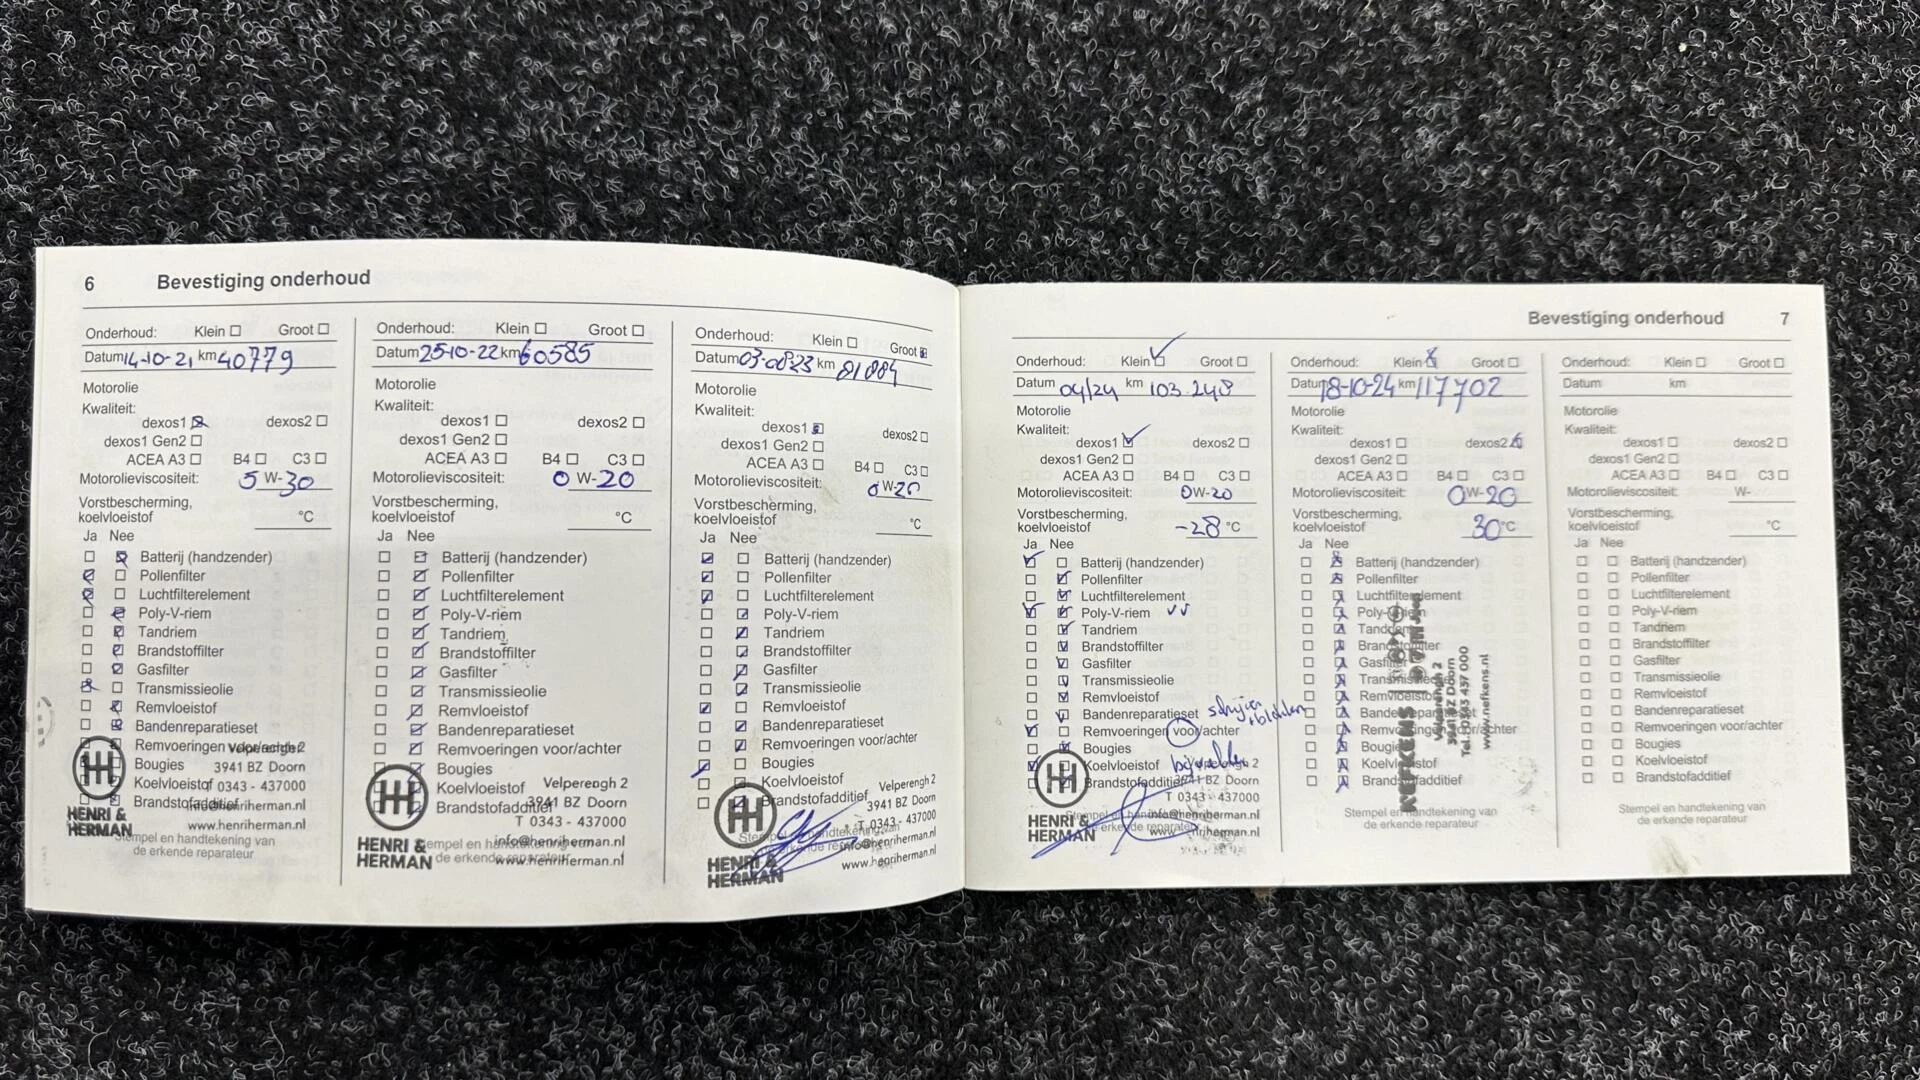 6 Bevestiging onderhoud
Onderhoud: Klein Groot
Datum 14-10-21 km 40779
Motorolie
Kwaliteit:
dexos1 dexos2
dexos1 Gen2
ACEA A3 B4 C3
Motorolieviscositeit: 5 W-30
Vorstbescherming,
koelvloeistof °C
Ja Nee
Batterij (handzender)
Pollenfilter
Luchtfilterelement
Poly-V-riem
Tandriem
Brandstoffilter
Gasfilter
Transmissieolie
Remvloeistof
Bandenreparatieset
Remvoeringen voor/achter
Bougies
Koelvloeistof
Brandstofadditief
Stempel en handtekening van
de erkende reparateur
HENRI &
HERMAN
Velperengh 2
3941 BZ Doorn
T 0343 - 437000
info@henriherman.nl
www.henriherman.nl
Onderhoud: Klein Groot
Datum 25-10-22 km 60585
Motorolie
Kwaliteit:
dexos1 dexos2
dexos1 Gen2
ACEA A3 B4 C3
Motorolieviscositeit: 0 W-20
Vorstbescherming,
koelvloeistof °C
Ja Nee
Batterij (handzender)
Pollenfilter
Luchtfilterelement
Poly-V-riem
Tandriem
Brandstoffilter
Gasfilter
Transmissieolie
Remvloeistof
Bandenreparatieset
Remvoeringen voor/achter
Bougies
Koelvloeistof
Brandstofadditief
Stempel en handtekening van
de erkende reparateur
HENRI &
HERMAN
Velperengh 2
3941 BZ Doorn
T 0343 - 437000
info@henriherman.nl
www.henriherman.nl
Onderhoud: Klein Groot
Datum 03-0823 km 81884
Motorolie
Kwaliteit:
dexos1 dexos2
dexos1 Gen2
ACEA A3 B4 C3
Motorolieviscositeit: 0 W-20
Vorstbescherming,
koelvloeistof °C
Ja Nee
Batterij (handzender)
Pollenfilter
Luchtfilterelement
Poly-V-riem
Tandriem
Brandstoffilter
Gasfilter
Transmissieolie
Remvloeistof
Bandenreparatieset
Remvoeringen voor/achter
Bougies
Koelvloeistof
Brandstofadditief
Stempel en handtekening van
de erkende reparateur
HENRI &
HERMAN
Velperengh 2
3941 BZ Doorn
T 0343 - 437000
info@henriherman.nl
www.henriherman.nl
Bevestiging onderhoud 7
Onderhoud: Klein Groot
Datum 04/24 km 103.248
Motorolie
Kwaliteit:
dexos1 dexos2
dexos1 Gen2
ACEA A3 B4 C3
Motorolieviscositeit: 0W-20
Vorstbescherming,
koelvloeistof -28 °C
Ja Nee
Batterij (handzender)
Pollenfilter
Luchtfilterelement
Poly-V-riem
Tandriem
Brandstoffilter
Gasfilter
Transmissieolie
Remvloeistof
Bandenreparatieset
schijven
+blokken
Remvoeringen voor/achter
Bougies
Koelvloeistof
Brandstofadditief
Stempel en handtekening van
de erkende reparateur
HENRI &
HERMAN
Velperengh 2
3941 BZ Doorn
T 0343 - 437000
info@henriherman.nl
www.henriherman.nl
Onderhoud: Klein Groot
Datum 18-10-24 km 117702
Motorolie
Kwaliteit:
dexos1 dexos2
dexos1 Gen2
ACEA A3 B4 C3
Motorolieviscositeit: 0W-20
Vorstbescherming,
koelvloeistof 30 °C
Ja Nee
Batterij (handzender)
Pollenfilter
Luchtfilterelement
Poly-V-riem
Tandriem
Brandstoffilter
Gasfilter
Transmissieolie
Remvloeistof
Bandenreparatieset
Remvoeringen voor/achter
Bougies
Koelvloeistof
Brandstofadditief
Stempel en handtekening van
de erkende reparateur
NEFKENS
Velperengh 2
3941 BZ Doorn
Tel. 0343 437 000
www.nefkens.nl
Onderhoud: Klein Groot
Datum km
Motorolie
Kwaliteit:
dexos1 dexos2
dexos1 Gen2
ACEA A3 B4 C3
Motorolieviscositeit: W-
Vorstbescherming,
koelvloeistof °C
Ja Nee
Batterij (handzender)
Pollenfilter
Luchtfilterelement
Poly-V-riem
Tandriem
Brandstoffilter
Gasfilter
Transmissieolie
Remvloeistof
Bandenreparatieset
Remvoeringen voor/achter
Bougies
Koelvloeistof
Brandstofadditief
Stempel en handtekening van
de erkende reparateur